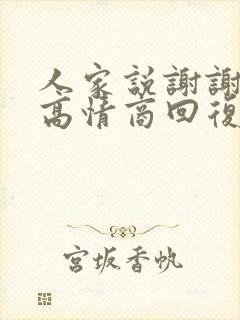 人家説謝謝
高情商回復
宮坂香帆